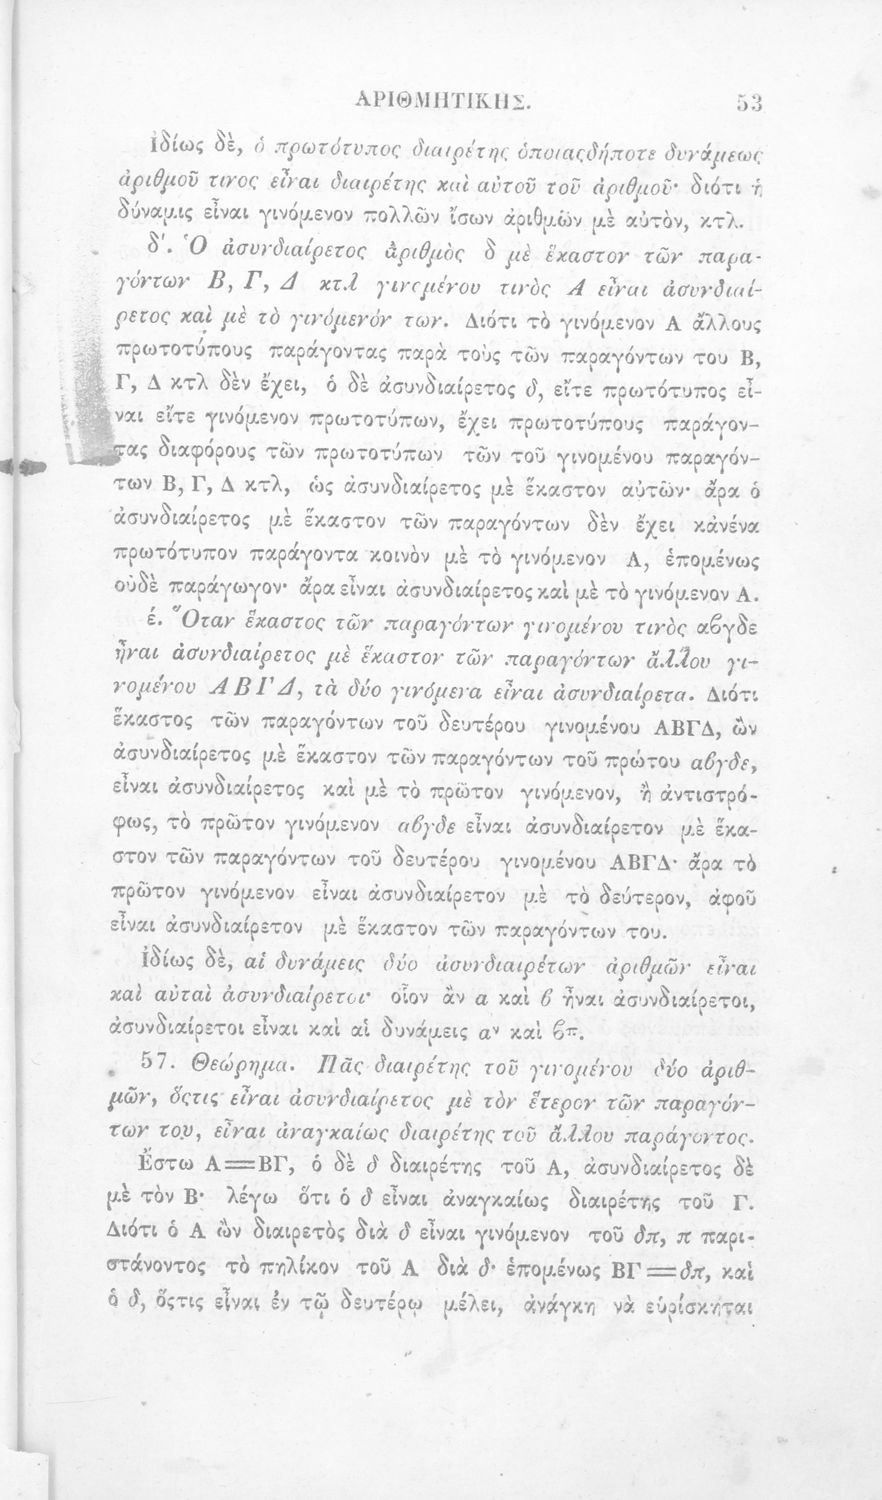 ΑΡΙΘΜΗΤΙΚΗΣ. 53
Ἰδίως δὲ, ὁ πρωτότυπος διαιρέτης ὁποιαςδήποτε δυνάμεως
ἀριθμοῦ τινος εἶναι διαιρέτης καὶ αὐτοῦ τοῦ ἀριθμοῦ· διότι ἡ
δύναμις εἶναι γινόμενον πολλῶν ἴσων ἀριθμῶν μὲ αὐτὸν, κτλ.
δ'. Ὁ ἀσυνδιαίρετος ἀριθμὸς δ μὲ ἕκαστον τῶν παρα-
γόντων Β, Γ, Δ κτλ γινομένου τινὸς Α εἶναι ἀσυνδιαί-
ρετος καὶ μὲ τὸ γινόμενόν των. Διότι τὸ γινόμενον Α ἄλλους
πρωτοτύπους παράγοντας παρὰ τοὺς τῶν παραγόντων του Β,
Γ, Δ κτλ δὲν ἔχει, ὁ δὲ ἀσυνδιαίρετος δ, εἴτε πρωτότυπος εἶ-
ναι εἴτε γινόμενον πρωτοτύπων, ἔχει πρωτοτύπους παράγον-
τας διαφόρους τῶν πρωτοτύπων τῶν τοῦ γινομένου παραγόν-
των Β, Γ, Δ κτλ, ὡς ἀσυνδιαίρετος μὲ ἕκαστον αὐτῶν· ἄρα ὁ
ἀσυνδιαίρετος μὲ ἕκαστον τῶν παραγόντων δὲν ἔχει κᾀνένα
πρωτότυπον παράγοντα κοινὸν μὲ τὸ γινόμενον Α, ἑπομένως
οὐδὲ παράγωγον· ἄρα εἶναι ἀσυνδιαίρετος καὶ μὲ τὸ γινόμενον Α.
έ. Ὅταν ἕκαστος τῶν παραγόντων γινομένου τινὸς αβγδε
ᾖναι ἀσυνδιαίρετος μὲ ἕκαστον τῶν παραγόντων ἄλλου γι-
νομένου ΑΒΓΔ, τὰ δύο γινόμενα εἶναι ἀσυνδιαίρετα. Διότι
ἕκαστος τῶν παραγόντων τοῦ δευτέρου γινομένου ΑΒΓΔ, ὢν
ἀσυνδιαίρετος μὲ ἕκαστον τῶν παραγόντων τοῦ πρώτου αβγδε,
εἶναι ἀσυνδιαίρετος καὶ μὲ τὸ πρῶτον γινόμενον, ἢ ἀντιστρό-
φως, τὸ πρῶτον γινόμενον αβγδε εἶναι ἀσυνδιαίρετον μὲ ἕκα-
στον τῶν παραγόντων τοῦ δευτέρου γινομένου ΑΒΓΔ· ἄρα τὸ
πρῶτον γινόμενον εἶναι ἀσυνδιαίρετον μὲ τὸ δεύτερον, ἀφοῦ
εἶναι ἀσυνδιαίρετον μὲ ἕκαστον τῶν παραγόντων του.
Ἰδίως δὲ, αἱ δυνάμεις δύο ἀσυνδιαιρέτων ἀριθμῶν εἶναι
καὶ αὐταὶ ἀσυνδιαίρετοι· οἷον ἂν α καὶ β ᾖναι ἀσυνδιαίρετοι,
ἀσυνδιαίρετοι εἶναι καὶ αἱ δυνάμεις αᵛ καὶ βπ.
57. Θεώρημα. Πᾶς διαιρέτης τοῦ γινομένου δύο ἀριθ-
μῶν, ὅςτις εἶναι ἀσυνδιαίρετος μὲ τὸν ἕτερον τῶν παραγόν-
των του, εἶναι ἀναγκαίως διαιρέτης τοῦ ἄλλου παράγοντος.
Ἔστω Α=ΒΓ, ὁ δὲ δ διαιρέτης τοῦ Α, ἀσυνδιαίρετος δὲ
μὲ τὸν Β· λέγω ὅτι ὁ δ εἶναι ἀναγκαίως διαιρέτης τοῦ Γ.
Διότι ὁ Α ὢν διαιρετὸς διὰ δ εἶναι γινόμενον τοῦ δπ, π παρι-
στάνοντος τὸ πηλίκον τοῦ Α διὰ δ· ἑπομένως ΒΓ=δπ, καὶ
ὁ δ, ὅςτις εἶναι ἐν τῷ δευτέρῳ μέλει, ἀνάγκη νὰ εὑρίσκηται